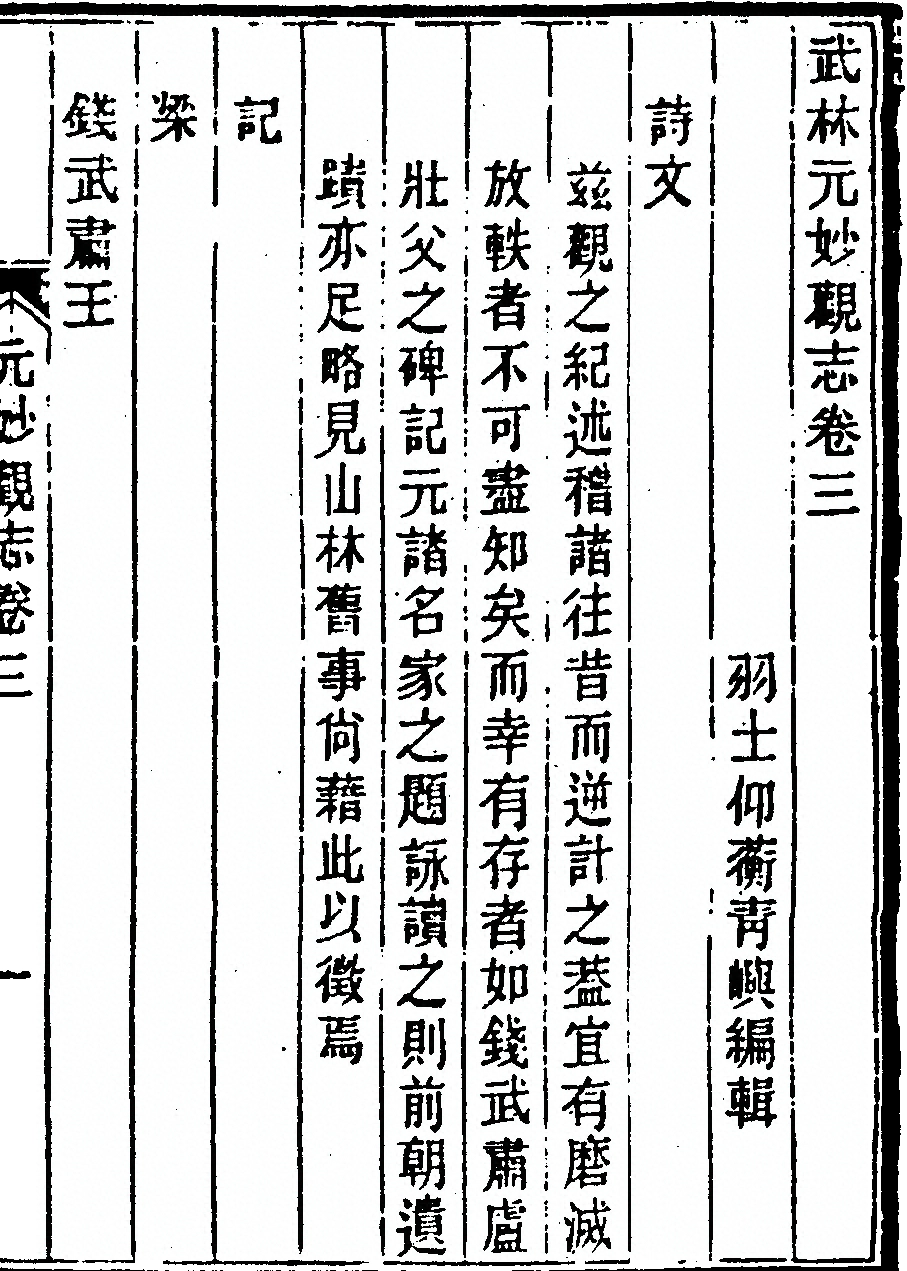 武林元妙觀志卷三
羽士仰蘅青嶼編輯
詩文
茲觀之紀述稽諸往昔而逆計之葢宜有磨滅
放軼者不可盡知矣而幸有存者如錢武肅盧
壯父之碑記元諸名家之題詠讀之則前朝遺
蹟亦足略見山林舊事尙藉此以徵焉
記
梁
錢武肅王
元妙觀志卷三
一